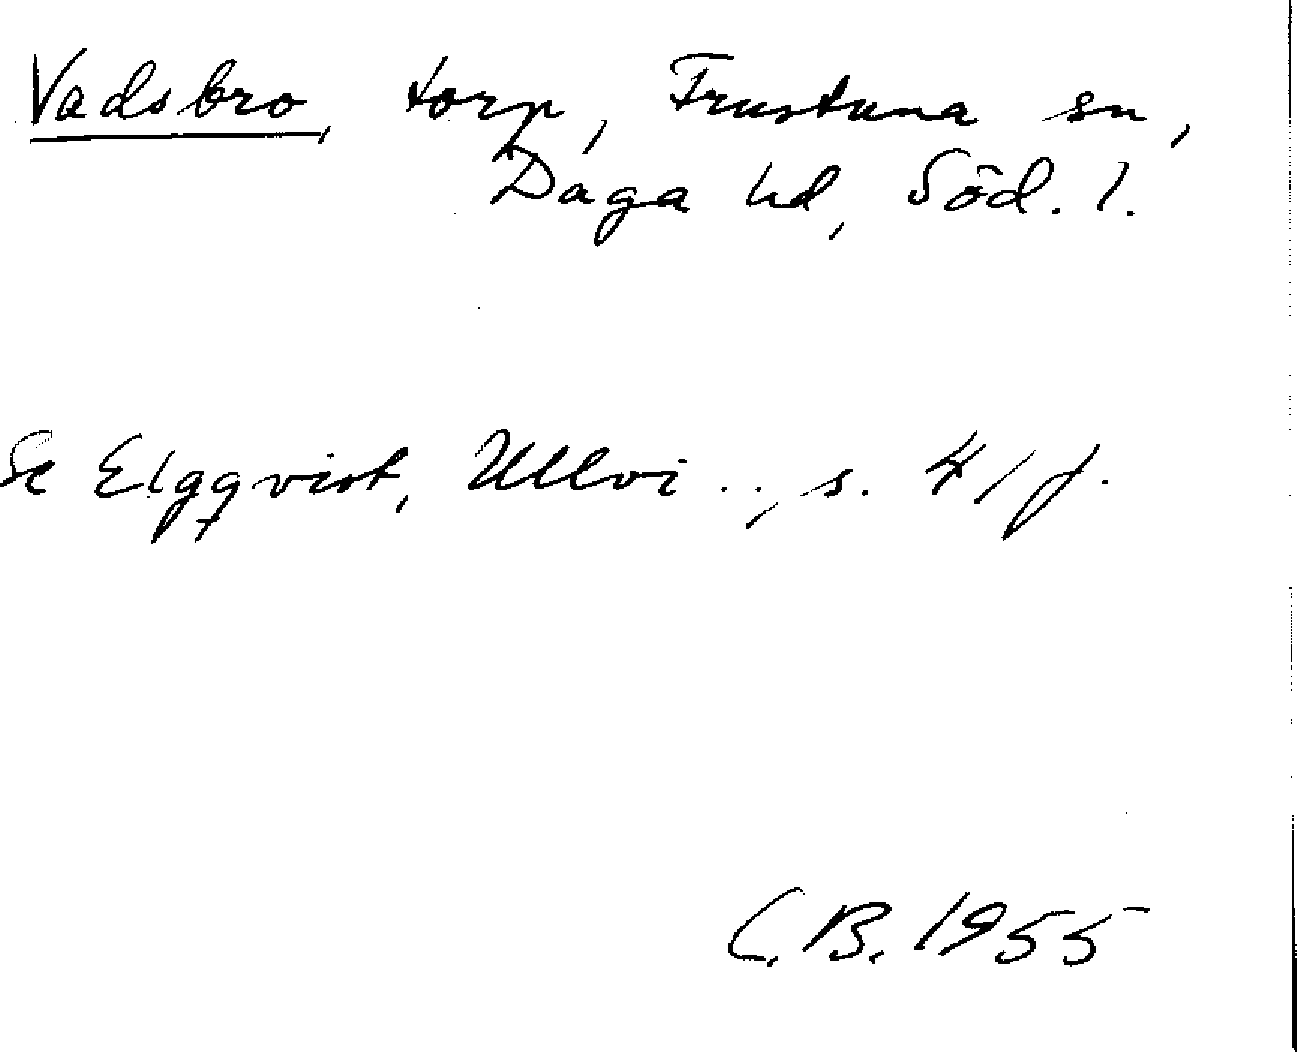 Vadsbro, torp, Frustuna sn,
Daga hd, Söd. l.
Se Elgqvist, Ullvi .., s. 41 f.
C.B. 1955